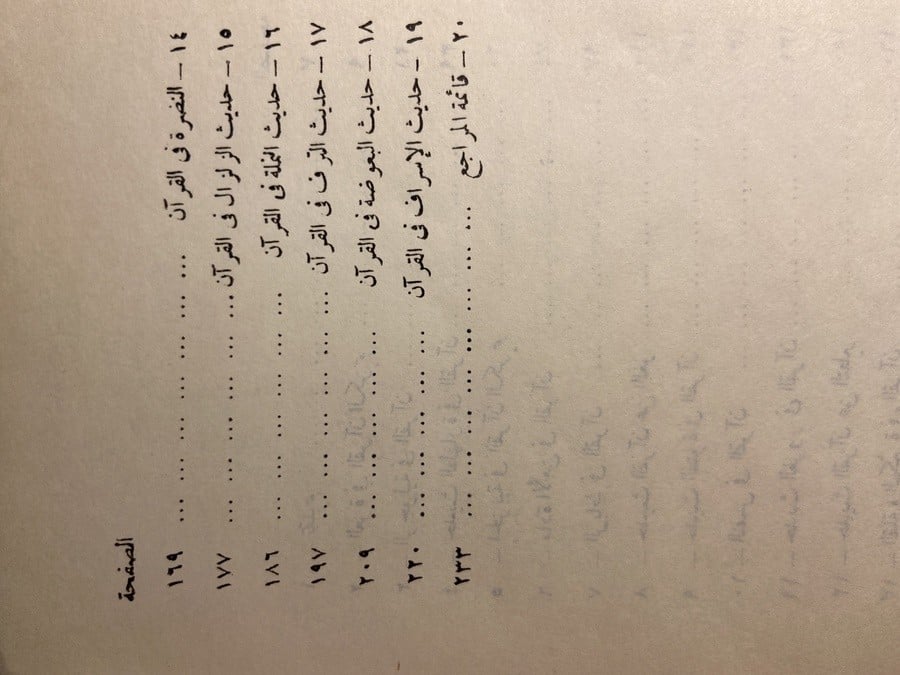 الصفحة
١٤ – النضرة فى القرآن ... ... ... ... ... ١٦٩
١٥ – حديث الزلزال فى القرآن ... ... ... ... ١٧٧
١٦ – حديث النملة فى القرآن ... ... ... ... ١٨٦
١٧ – حديث الترف فى القرآن ... ... ... ... ١٩٧
١٨ – حديث البعوضة فى القرآن ... ... ... ٢٠٩
١٩ – حديث الإسراف فى القرآن ... ... ... ٢٢٠
٢٠ – قائمة المراجع ... ... ... ... ... ... ٢٣٣